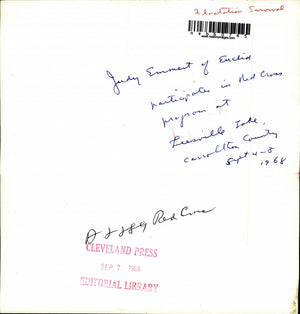 Flotation Survival
Judy Emment of Euclid
participates in Red Cross
program at
Leesville Lake,
Carrollton County
Sept 4-8
1968
Red Cross
CLEVELAND PRESS
SEP 7 1968
EDITORIAL LIBRARY